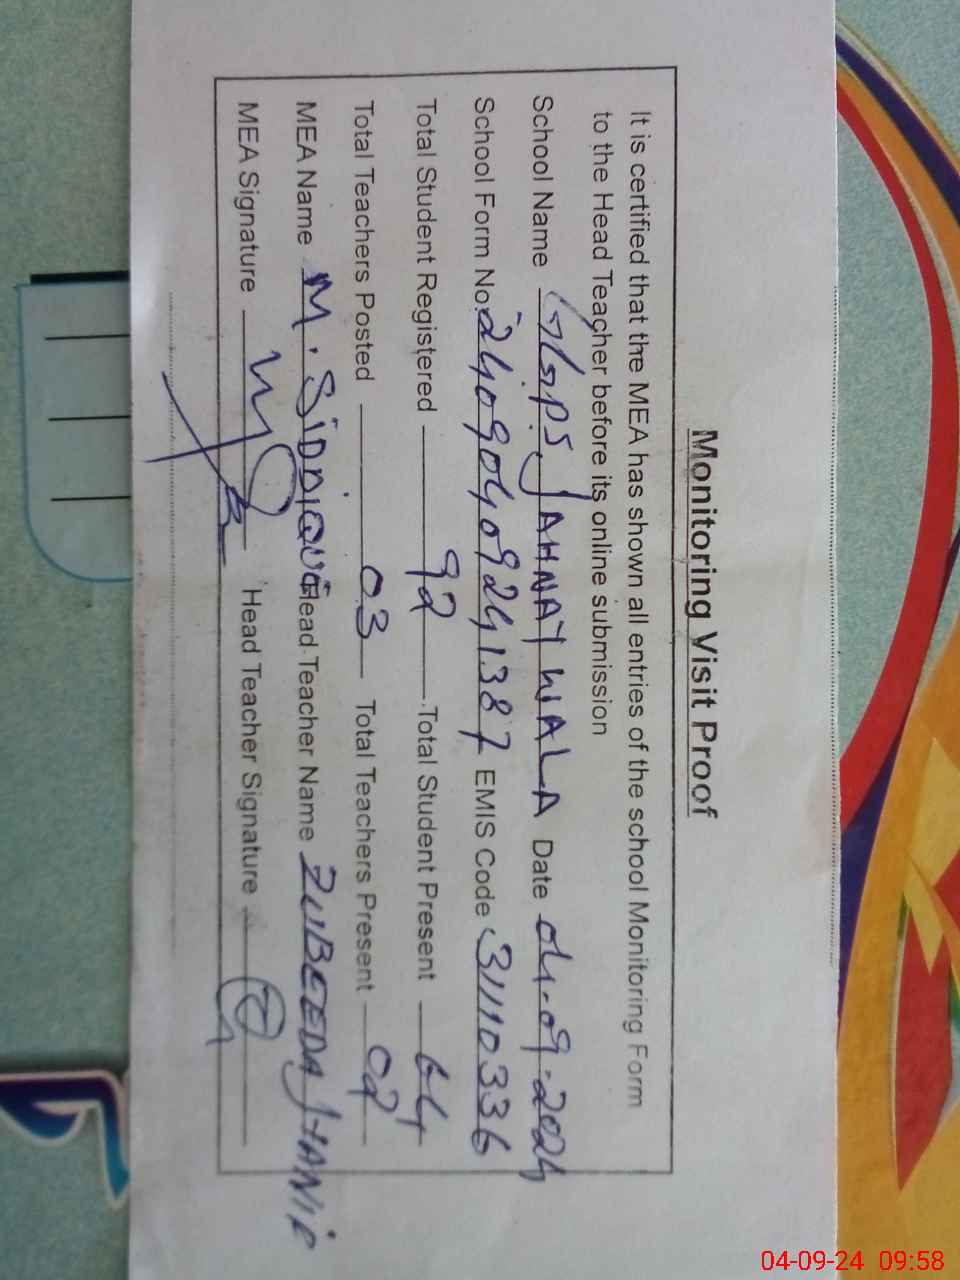 Monitoring Visit Proof
It is certified that the MEA has shown all entries of the school Monitoring Form
to the Head Teacher before its online submission
School Name GGPS JAHNAY WALA Date 04-09-2024
School Form No. 24090409241387 EMIS Code 31110336
Total Student Registered 92 Total Student Present 64
Total Teachers Posted 03 Total Teachers Present 02
MEA Name M. SiDDiQUE Head Teacher Name ZUBEEDA
MEA Signature Head Teacher Signature
04-09-24 09:58